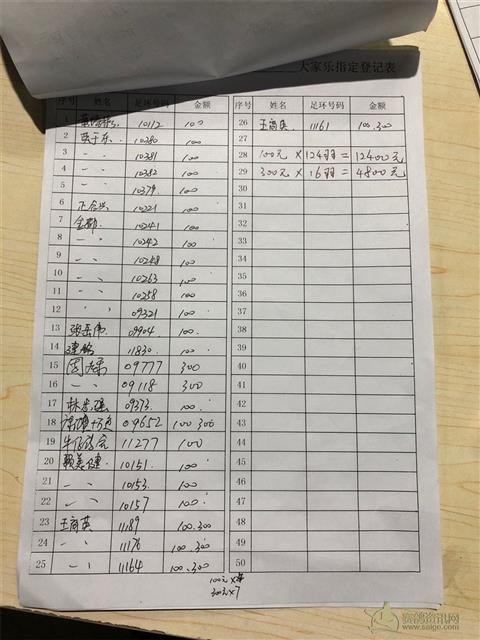 大家乐指定登记表
序号 姓名 足环号码 金额
1 10112 100
2 10380 100
3 〃 10381 100
4 〃 10382 100
5 〃 10379 100
6 10221 100
7 10241 100
8 〃 10242 100
9 〃 10248 100
10 〃 10263 100
11 〃 10258 100
12 〃 09321 100
13 张岳伟 09904 100
14 11830 100
15 09777 300
16 〃 09118 300
17 09373 100
18 09652 100 300
19 11277 100
20 10151 100
21 〃 10153 100
22 〃 10157 100
23 王商英 11189 100.300
24 〃 11176 100.300
25 〃 11164 100.300
序号 姓名 足环号码 金额
26 王商英 11161 100.300
27
28 100元×124羽=12400元
29 300元×16羽=4800元
30
31
32
33
34
35
36
37
38
39
40
41
42
43
44
45
46
47
48
49
50
100元×
300元×7
赛鸽资讯网
www.saige.com